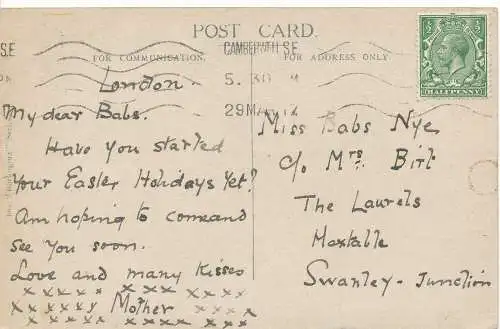 POST CARD.
FOR COMMUNICATION. FOR ADDRESS ONLY
CAMBERWELL S.E
5. 30 PM
29 MAR
S.E
½ ½
HALFPENNY
London.
My dear Babs.
Have you started
Your Easter Holidays Yet?
Am hoping to comeand
See You Soon.
Love and many Kisses
x x x x x x x x x x x
x x x x x x Mother x x x x
x x x x x x x x x x x x x x
Miss Babs Nye,
c/o Mrs Birt
The Laurels
Hextable
Swanley-Junction